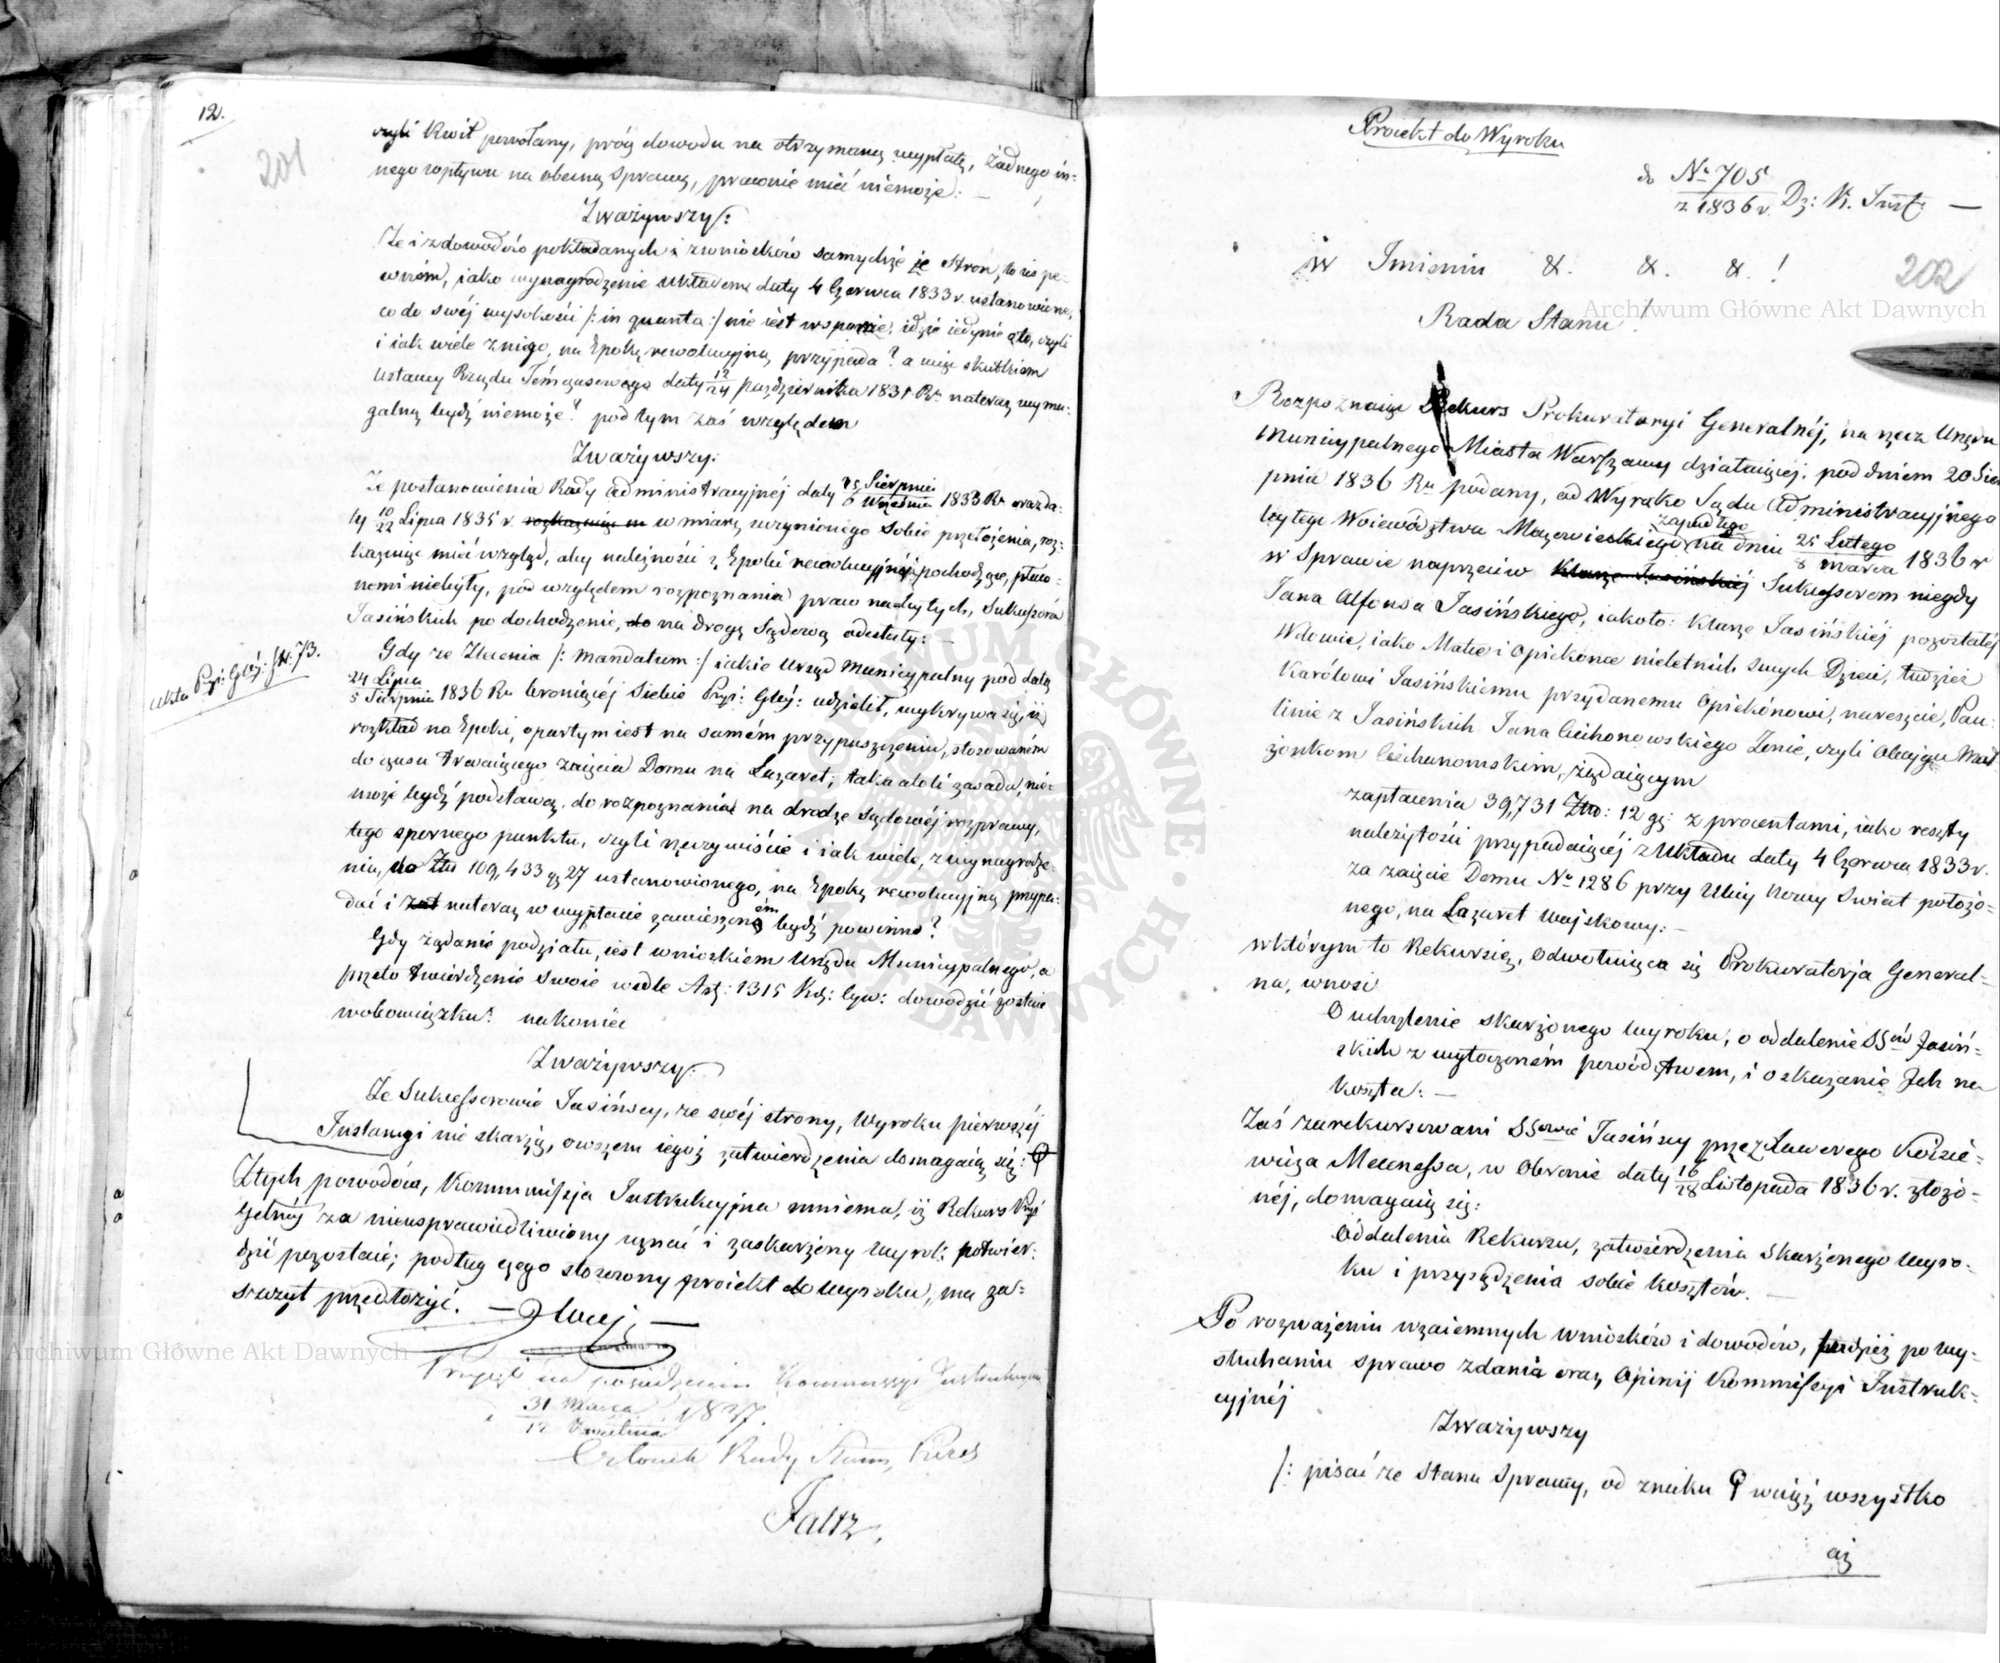 12.
201
czyli Kwit powołany, prócz dowodu na otrzymaną wypłatę, żadnego in-
nego wpływu na obecną sprawę, prawnie mieć niemoże: —
Zważywszy:
Że i z dowodów pokładanych i z wniosków samychże je Stron, to iest pe-
wném, iako wynagrodzenie układem daty 4 Czerwca 1833 r. ustanowione,
co do swéj wysokości /: in quanto :/ nie iest w sporze, idzie iedynie o to, czyli
i iak wiele z niego, na Epokę rewolucyjną, przypada? a więc skutkiem
ustawy Rządu Tymczasowego daty 12/24 Października 1831 Ru nateraz wyma-
galną bydź niemoże? pod tym zaś względem
Zważywszy:
Że postanowienia Rady Administracyjnéj daty 25 Sierpnia/6 Września 1833 Ru oraz da-
ty 10/22 Lipca 1835 r. w miarę uczynionego Sobie przełożenia, roz-
kazuje mieć wzgląd, aby należności z Epoki rewolucyjnéj pochodzące, płaco-
nemi niebyły, pod względem rozpoznania praw nabytych, Sukcessorów
Jasińskich po dochodzenie, do na drogę Sądową odesłały: —
Gdy ze Zlecenia /: mandatum :/ iakie Urząd Municypalny pod datą
akta Pr: Glnéj: f. N: 73.
24 Lipca/5 Sierpnia 1836 Ru broniącéj Siebie Pr: Glnéj: udzielił, wykrywa się, iż
rozkład na Epoki, opartym iest na samém przypuszczeniu, stosowaném
do czasu trwaiącego zaięcia Domu na Lazaret; taka atoli zasada, nie-
może bydź podstawą, do rozpoznania na drodze Sądowéj rozprawy,
tego spornego punktu, czyli rzeczywiście i iak wiele, z wynagrodze-
nia, do Złp 109,433 gr 27 ustanowionego, na Epokę rewolucyjną przypa-
dać i nateraz w wypłacie zawieszoném bydź powinno?
Gdy żądanie podziału, iest wnioskiem Urzędu Municypalnego, a
przeto twierdzenie swoie wedle Art: 1315 Kod: Cyw: dowodzić zostaie
w obowiązku: nakoniec
Zważywszy:
Że Sukcessorowie Jasińscy, ze swéj strony, Wyroku pierwszéj
Instancyi nie skarżą, owszem iegoż zatwierdzenia domagaią się:
Z tych powodów, Kommissyja Instrukcyjna mniema, iż Rekurs Pr:
Gelnéj za nieusprawiedliwiony uznać i zaskarżony Wyrok potwier-
dzić pozostaie; podług czego stosowny proiekt do wyroku, ma za-
szczyt przedłożyć. —
Przyjęte na posiedzeniu Kommissyi Instrukcyjnéj
31 Marca/12 Kwietnia 1837.
Członek Rady Stanu, Prezes
Faltz
Proiekt do Wyroku
do No 705/z 1836 r. Dz: K. Inst: —
202
w Imieniu &. &. &. !
Rada Stanu.
Rozpoznaiąc Rekurs Prokuratoryi Generalnéj, na rzecz Urzędu
Municypalnego Miasta Warszawy działaiącéj, pod dniem 20 Sier-
pnia 1836 Ru podany, od Wyroku Sądu Administracyjnego
byłego Województwa Mazowieckiego zapadłego na dniu 25 Lutego/8 Marca 1836 r
w Sprawie naprzeciw Klarze Jasińskiéj Sukcessorom niegdy
Jana Alfonsa Jasińskiego, iakoto: Klarze Jasińskiéj pozostałéj
Wdowie, iako Matce i Opiekunce nieletnich swych Dzieci, tudzież
Karólowi Jasińskiemu przydanemu Opiekónowi, nareszcie, Pau-
linie z Jasińskich Jana Ciechonowskiego Żonie, czyli Oboygu Mał-
żonkom Ciechanowskim, żądaiącym
zapłacenia 39,731 Złp: 12 gr: z procentami, iako reszty
należytości przypadaiącéj z Układu daty 4 Czerwca 1833 r.
za zaięcie Domu No 1286 przy Ulicy Nowy Świat położo-
nego, na Lazaret Woyskowy: —
w którym to Rekursie, odwołuiąca się Prokuratorja General-
na, wnosi
O uchylenie skarżonego wyroku, o oddalenie SSów Jasiń-
skich z wytoczoném powództwem, i o skazanie Ich na
koszta: —
Zaś zarekursowani SSowie Jasińscy przez Xawerego Kosie-
wicza Mecenassa, w Obronie daty 16/28 Listopada 1836 r. złożo-
néj, domagaią się:
Oddalenia Rekursu, zatwierdzenia skarżonego Wyro-
ku i przysądzenia sobie kosztów. —
Po rozważeniu wzaiemnych wniosków i dowodów, tudzież po wy-
słuchaniu sprawo zdania oraz Opinij Kommissyi Instruk-
cyjnéj
Zważywszy
/: pisać ze Stanu Sprawy, od znaku wciąż wszystko
aż
Archiwum Główne Akt Dawnych
Archiwum Główne Akt Dawnych
ARCHIWUM GŁÓWNE AKT DAWNYCH